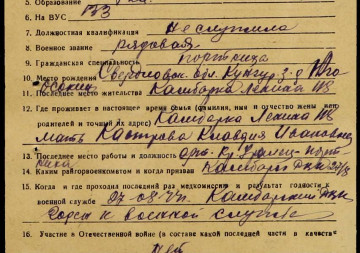 5. Образование
6. На ВУС 133
7. Должностная квалификация не служила
8. Военное звание рядовая
9. Гражданская специальность портниха
10. Место рождения Свердловск. обл. Кунгур. з-д
11. Последнее место жительства Камбарка Ленина 118
12. Где проживает в настоящее время семья (фамилия, имя и отчество жены или
родителей и точный их адрес) Камбарка Ленина 118
мать Клавдия Ивановна
13. Последнее место работы и должность арт. Кр. Уралец
14. Каким райгорвоенкоматом и когда призван Камбарск.
15. Когда и где проходил последний раз медкомиссию и результат годности к
военной службе 27-08-44г. Камбарский
Годен к военной службе
16. Участие в Отечественной войне (в составе какой последней части в качестве
нет